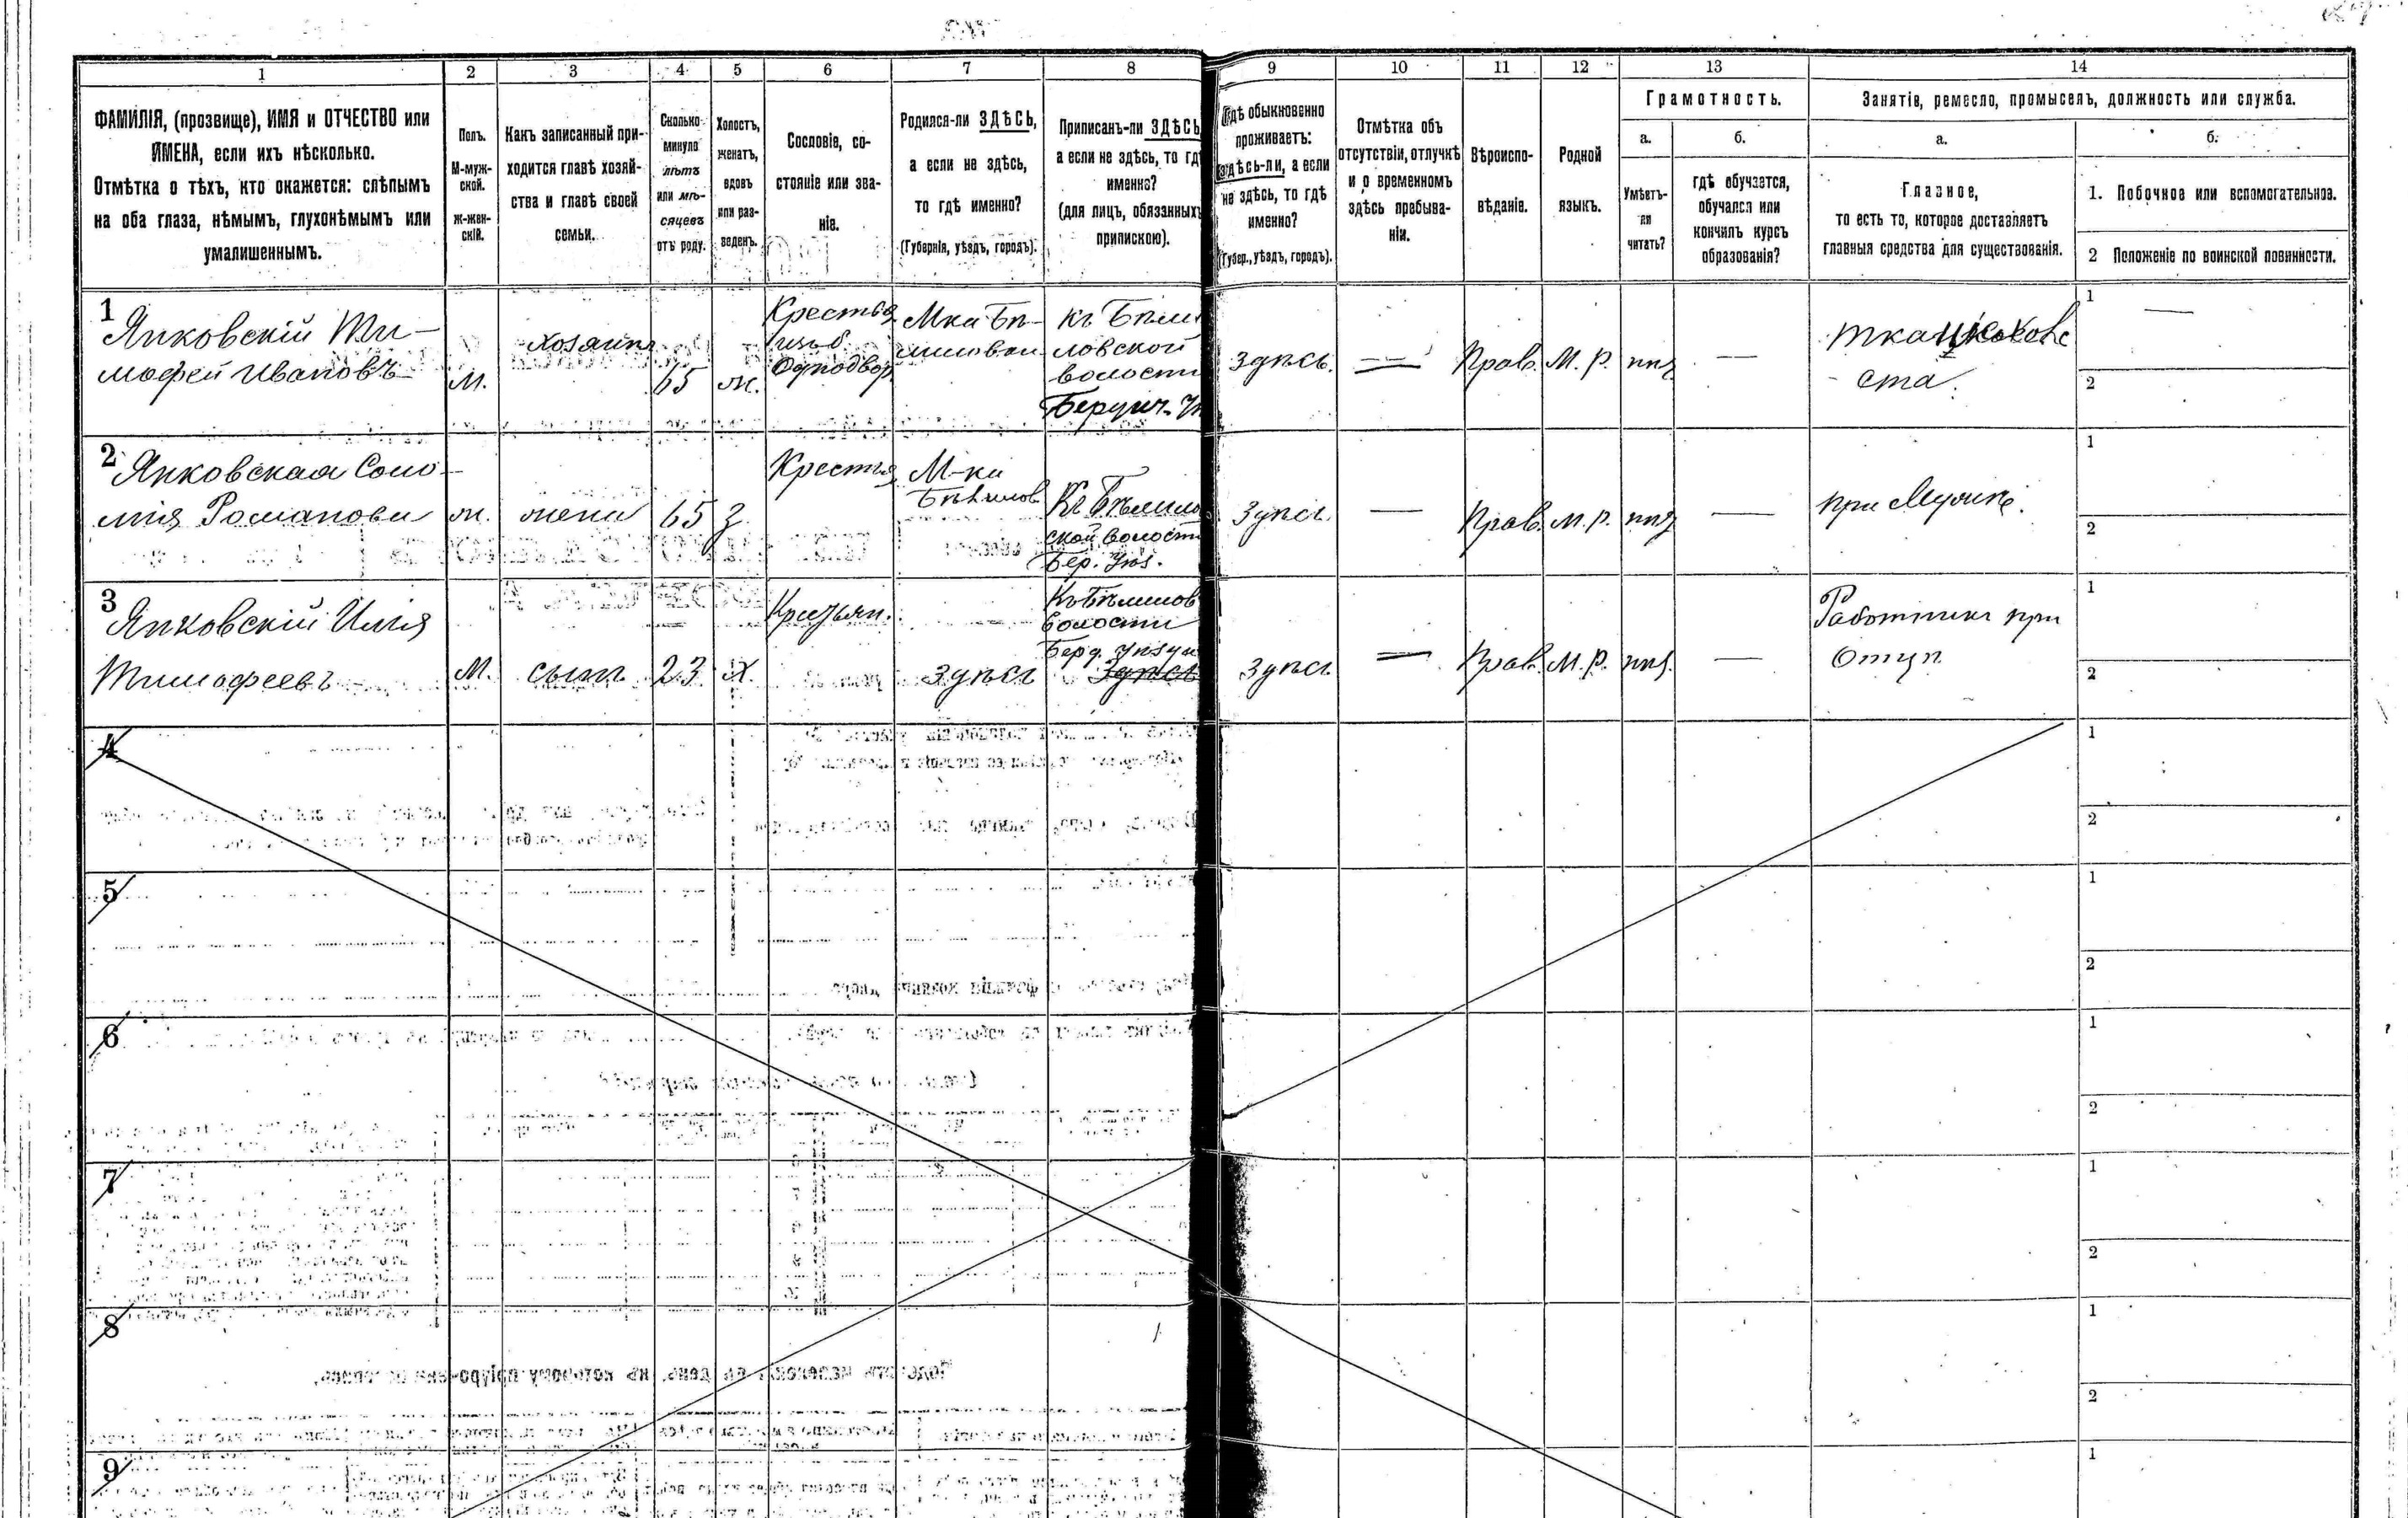 1
2
3
4
5
6
7
8
9
10
11
12
13
14
ФАМИЛІЯ, (прозвище), ИМЯ и ОТЧЕСТВО или
ИМЕНА, если ихъ нѣсколько.
Отмѣтка о тѣхъ, кто окажется: слѣпымъ
на оба глаза, нѣмымъ, глухонѣмымъ или
умалишеннымъ.
Полъ.
М-муж-
ской.
ж-жен-
скій.
Какъ записанный при-
ходится главѣ хозяй-
ства и главѣ своей
семьи.
Сколько
минуло
лѣтъ
или мѣ-
сяцевъ
отъ роду.
Холостъ,
женатъ,
вдовъ
или раз-
веденъ.
Сословіе, со-
стояніе или зва-
ніе.
Родился-ли ЗДѢСЬ,
а если не здѣсь,
то гдѣ именно?
(Губернія, уѣздъ, городъ).
Приписанъ-ли ЗДѢСЬ
а если не здѣсь, то гдѣ
именно?
(для лицъ, обязанныхъ
припискою).
Гдѣ обыкновенно
проживаетъ:
здѣсь-ли, а если
не здѣсь, то гдѣ
именно?
(Губер., уѣздъ, городъ).
Отмѣтка объ
отсутствіи, отлучкѣ
и о временномъ
здѣсь пребыва-
ніи.
Вѣроиспо-
вѣданіе.
Родной
языкъ.
Грамотность.
а.
Умѣетъ-
ли
читать?
б.
гдѣ обучается,
обучался или
кончилъ курсъ
образованія?
Занятіе, ремесло, промыселъ, должность или служба.
а.
Главное,
то есть то, которое доставляетъ
главныя средства для существованія.
б.
1. Побочное или вспомогательное.
2 Положеніе по воинской повинности.
1
Янковскій Ти-
мофей Ивановъ
М.
хозяинъ
65
ж.
Крестья
изъ б.
Однодвор
Мка Бѣ-
лиловки
къ Бѣли
ловской
волости
Бердич. У
здѣсь.
—
Прав.
М. р.
нѣт
—
ста.
1 —
2
2
Янковская Соло-
мія Романова
ж.
жена
65
з
Крестья
М-ка
Бѣлилов
Къ Бѣлило
ской волости
Бер. Уѣз.
здѣсь
—
Прав.
м. р.
нѣт
—
при Мужѣ.
1
2
3
Янковскій Илія
Тимофеевъ
М.
сынъ
23
х.
здѣсь
Къ Бѣлилов
волости
Берд. уѣзда
здѣсь
здѣсь
—
Прав.
М. р.
нѣт.
—
Работникъ при
Отцѣ
1
2
4
1
2
5
1
2
6
1
2
7
1
2
8
1
2
9
1